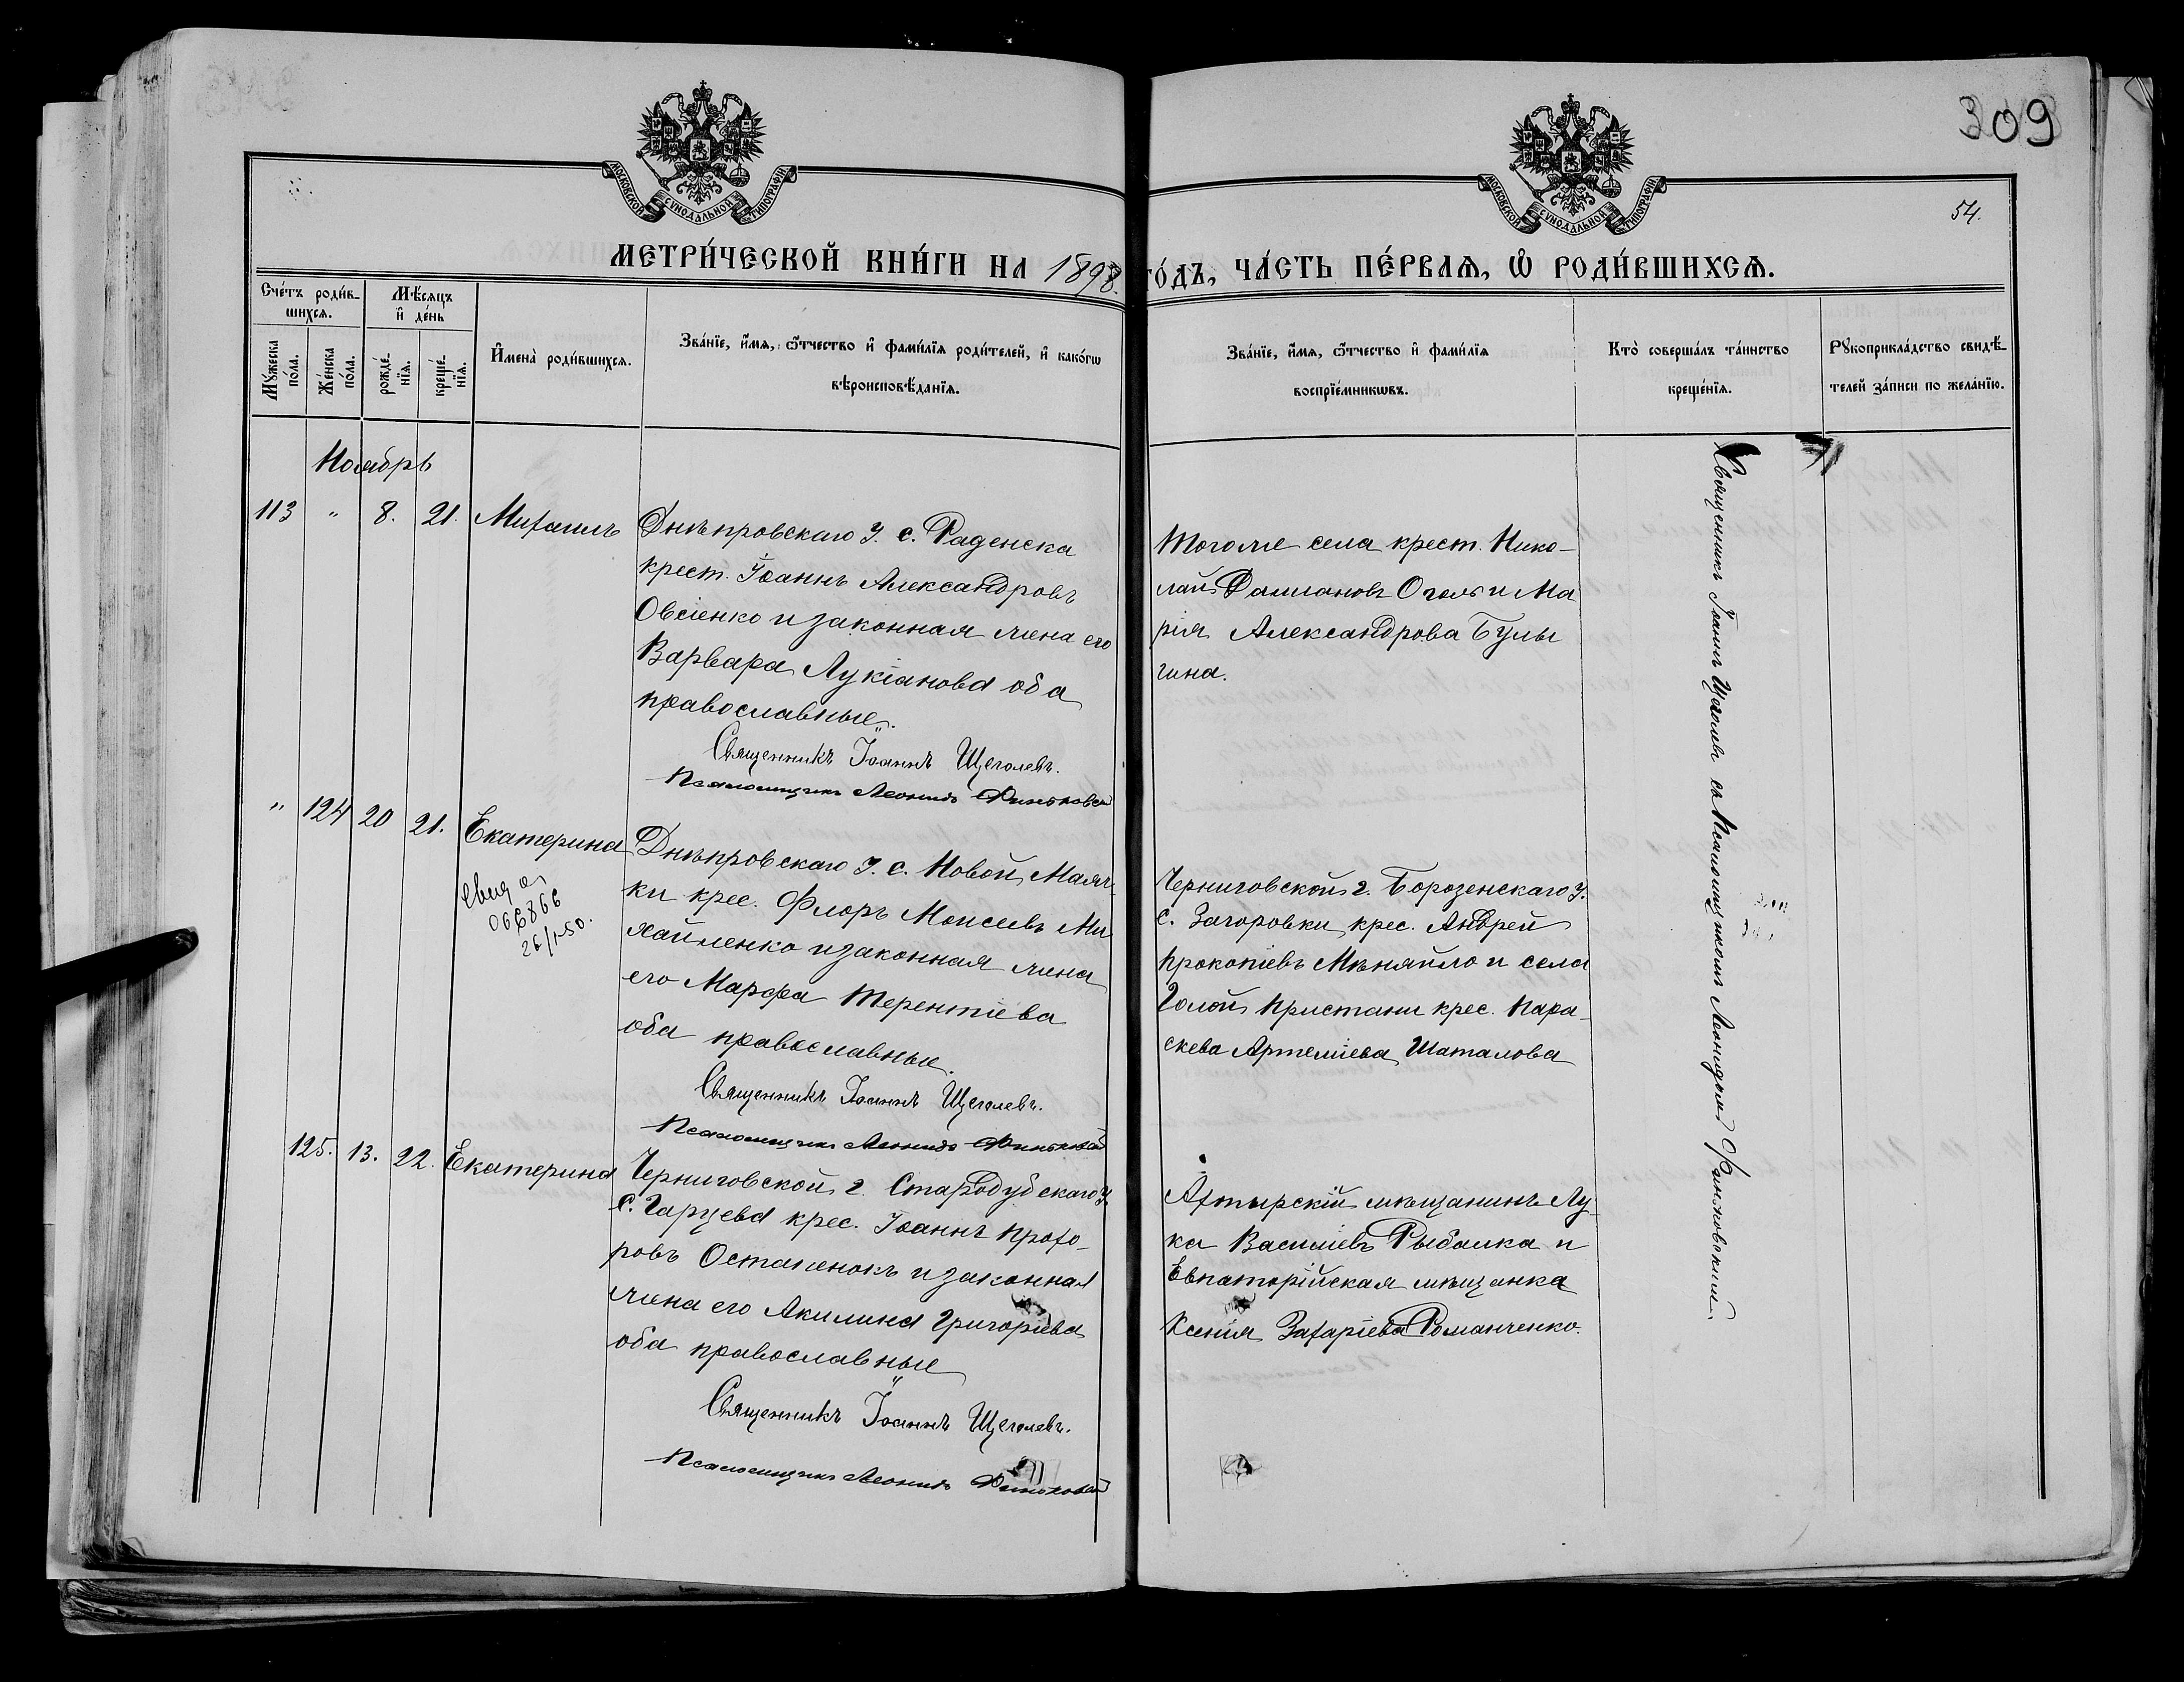 309
54.
МОСКОВСКОЙ СѴНОДАЛЬНОЙ ТИПОГРАФІИ
МОСКОВСКОЙ СѴНОДАЛЬНОЙ ТИПОГРАФІИ
МЕТРИ́ЧЕСКОЙ КНИ́ГИ НА 1898 ГО́ДЪ, ЧА́СТЬ ПЕ́РВАѦ, Ѡ҆ РОДИ́ВШИХСѦ.
Сче́тъ роди́в-
шихсѧ.
Мѣ́сѧцъ
и҆ де́нь
Мꙋ́жеска
по́ла.
Же́нска
по́ла.
рожде́-
нїѧ.
креще́-
нїѧ.
И҆мена̀ роди́вшихсѧ.
Зва́нїе, и҆́мѧ, ѻ҆́тчество и҆ фами́лїѧ роди́телей, и҆ како́гѡ
вѣроисповѣ́данїѧ.
Зва́нїе, и҆́мѧ, ѻ҆́тчество и҆ фами́лїѧ
воспрїе́мникѡвъ.
Кто̀ соверша́лъ та́инство
креще́нїѧ.
Рꙋкоприкла́дство свидѣ́-
телей за́писи по жела́нїю.
Ноябрь
113 " 8. 21. Михаилъ
Днѣпровскаго У. с. Раденска
крест. Іоаннъ Александровъ
Овсіенко и законная жена его
Варвара Лукіанова оба
православные.
Священникъ Іоаннъ Щеголевъ.
Псаломщикъ Леонидъ Финьковскій
Тогоже села крест. Нико-
лай Дамиановъ Оголь и Ма
рія Александрова Булы
гина.
" 124 20 21. Екатерина
066866
26/I-50.
Днѣпровскаго У. с. Новой Маяч-
ки крес. Флоръ Моисеевъ Ми
хайленко и законная жена
его Марфа Терентіева
оба православные.
Священникъ Іоаннъ Щеголевъ.
Псаломщикъ Леонидъ Финьковскій
Черниговской г. Борозенскаго У.
с. Загоровки крес. Андрей
Прокопіевъ Мѣняйло и села
Голой Пристани крес. Пара-
скева Артеміева Шаталова
125. 13. 22. Екатерина
Черниговской г. Стародубскаго У
с. Гарцева крес. Іоаннъ Прохо-
ровъ Остапенокъ и законная
жена его Акилина Григоріева
оба православные
Священникъ Іоаннъ Щеголевъ.
Псаломщикъ Леонидъ Финьковскій
Ахтырскій мѣщанинъ Лу-
ка Василіевъ Рыбалка и
Евпаторійская мѣщанка
Ксенія Захаріева Романченко.
Священникъ Іоаннъ Щеголевъ съ Псаломщикомъ Леонидомъ Финьковскимъ.